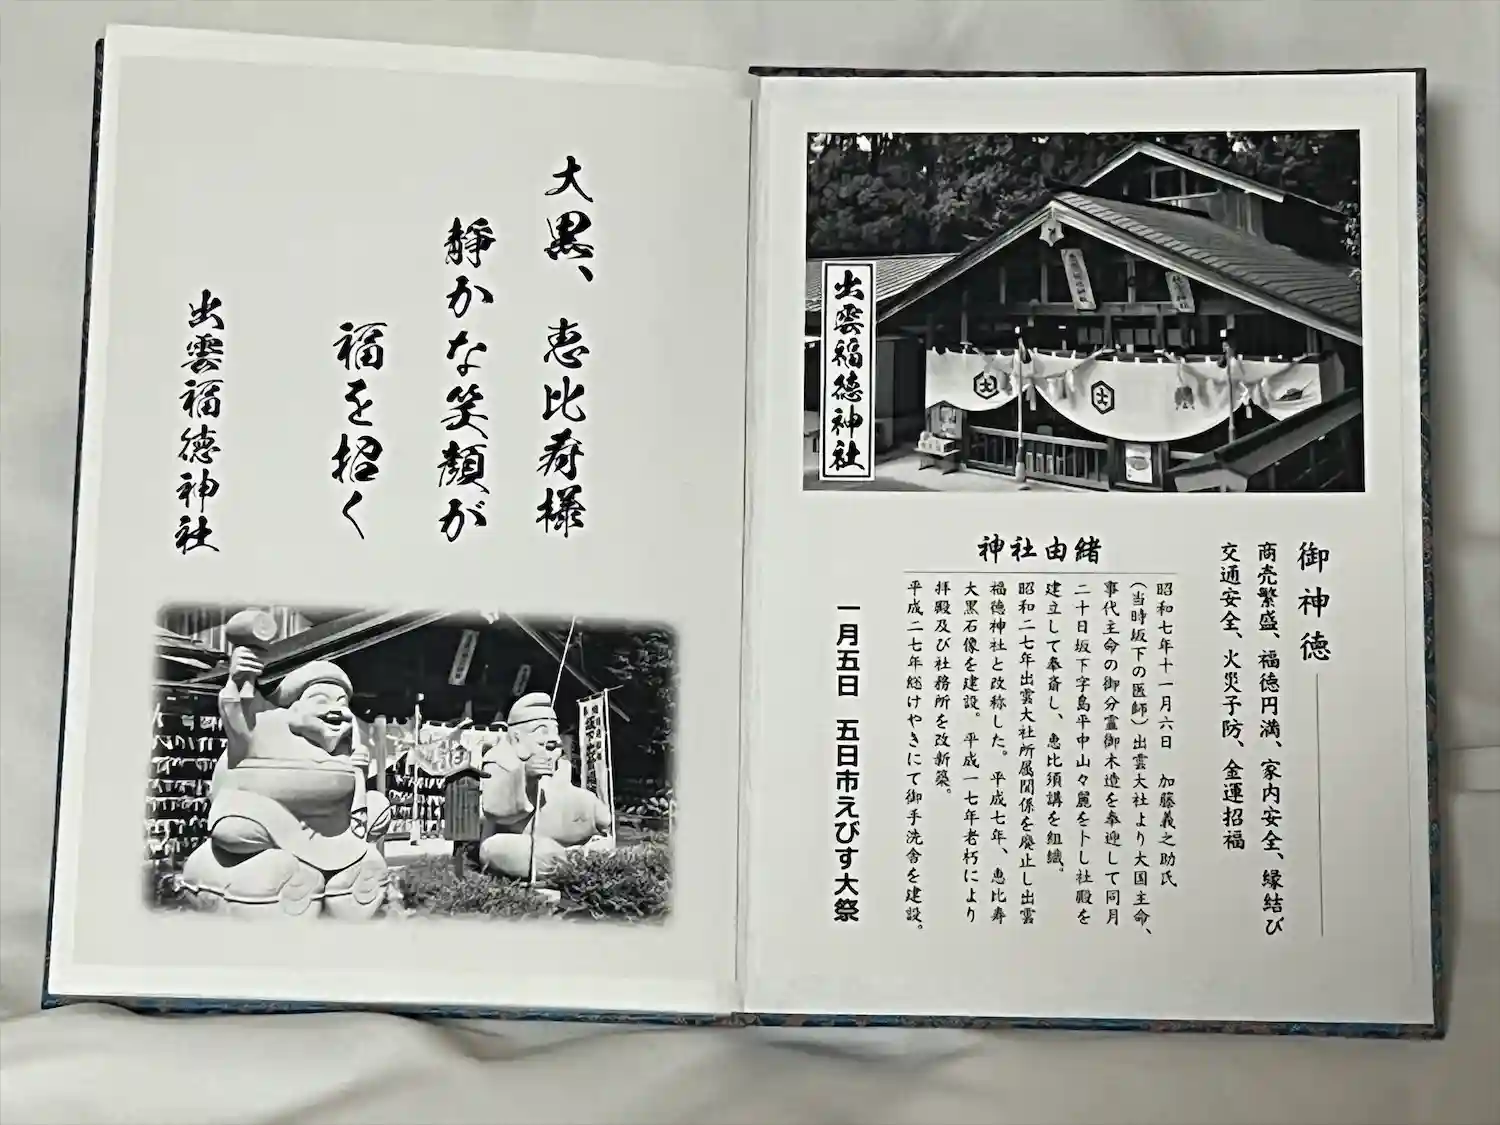 出雲福徳神社
御神徳
商売繁盛、福徳円満、家内安全、縁結び
交通安全、火災予防、金運招福
神社由緒
昭和七年十一月六日 加藤義之助氏
(当時坂下の医師)出雲大社より大国主命、
事代主命の御分霊御木造を奉迎して同月
二十日坂下字島平中山々麓を卜し社殿を
建立して奉斎し、恵比須講を組織。
昭和二七年出雲大社所属関係を廃止し出雲
福徳神社と改称した。平成七年、恵比寿
大黒石像を建設。平成一七年老朽により
拝殿及び社務所を改新築。
平成二七年総けやきにて御手洗舎を建設。
一月五日 五日市えびす大祭
大黒、恵比寿様
静かな笑顔が
福を招く
出雲福徳神社